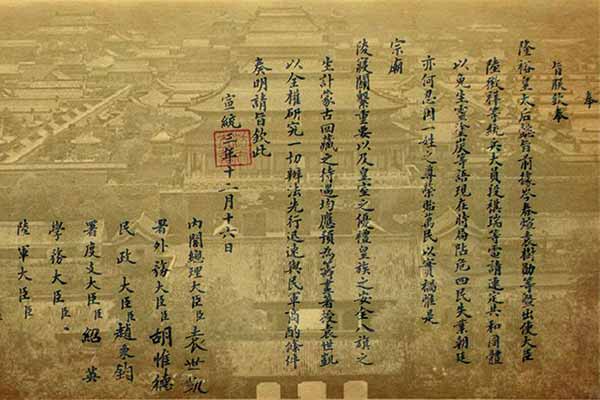 奉
旨朕欽奉
隆裕皇太后懿旨前據岑春煊袁樹勛等暨出使大臣
陸徵祥等統兵大員段祺瑞等電請速定共和國體
以免生靈塗炭等語現在時局阽危四民失業朝廷
亦何忍因一姓之尊榮貽萬民以實禍惟是
宗廟
陵寢關繫重要以及皇室之優禮皇族之安全八旗之
生計蒙古回藏之待遇均應預為籌畫著授袁世凱
以全權研究一切辦法先行迅速與民軍商酌條件
奏明請旨欽此
宣統三年十二月十六日
內閣總理大臣臣袁世凱
署外務大臣臣胡惟德
民政大臣臣趙秉鈞
署度支大臣臣紹英
學務大臣臣
陸軍大臣臣